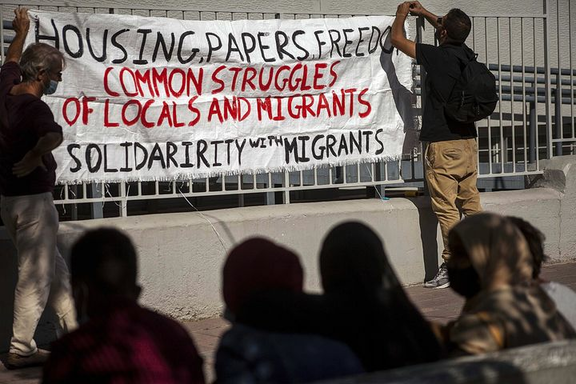 HOUSING, PAPERS, FREEDO
COMMON STRUGGLES
OF LOCALS AND MIGRANTS
SOLIDARIRITY WITH MIGRANTS